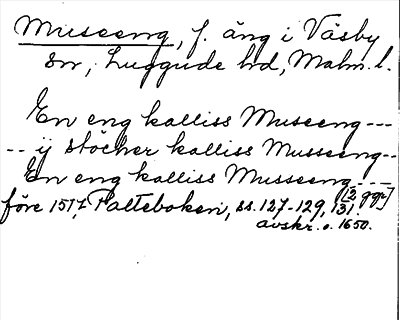 Museeng, f. äng i Väsby
sn, Luggude hd, Malm. l.
En eng kalliss Museeng---
-- ij stöcher kalliss Musseeng--
En eng kalliss Musseeng ---
[2 ggr]
före 1517, Palteboken, ss. 127-129, 131.
avskr. o. 1650.